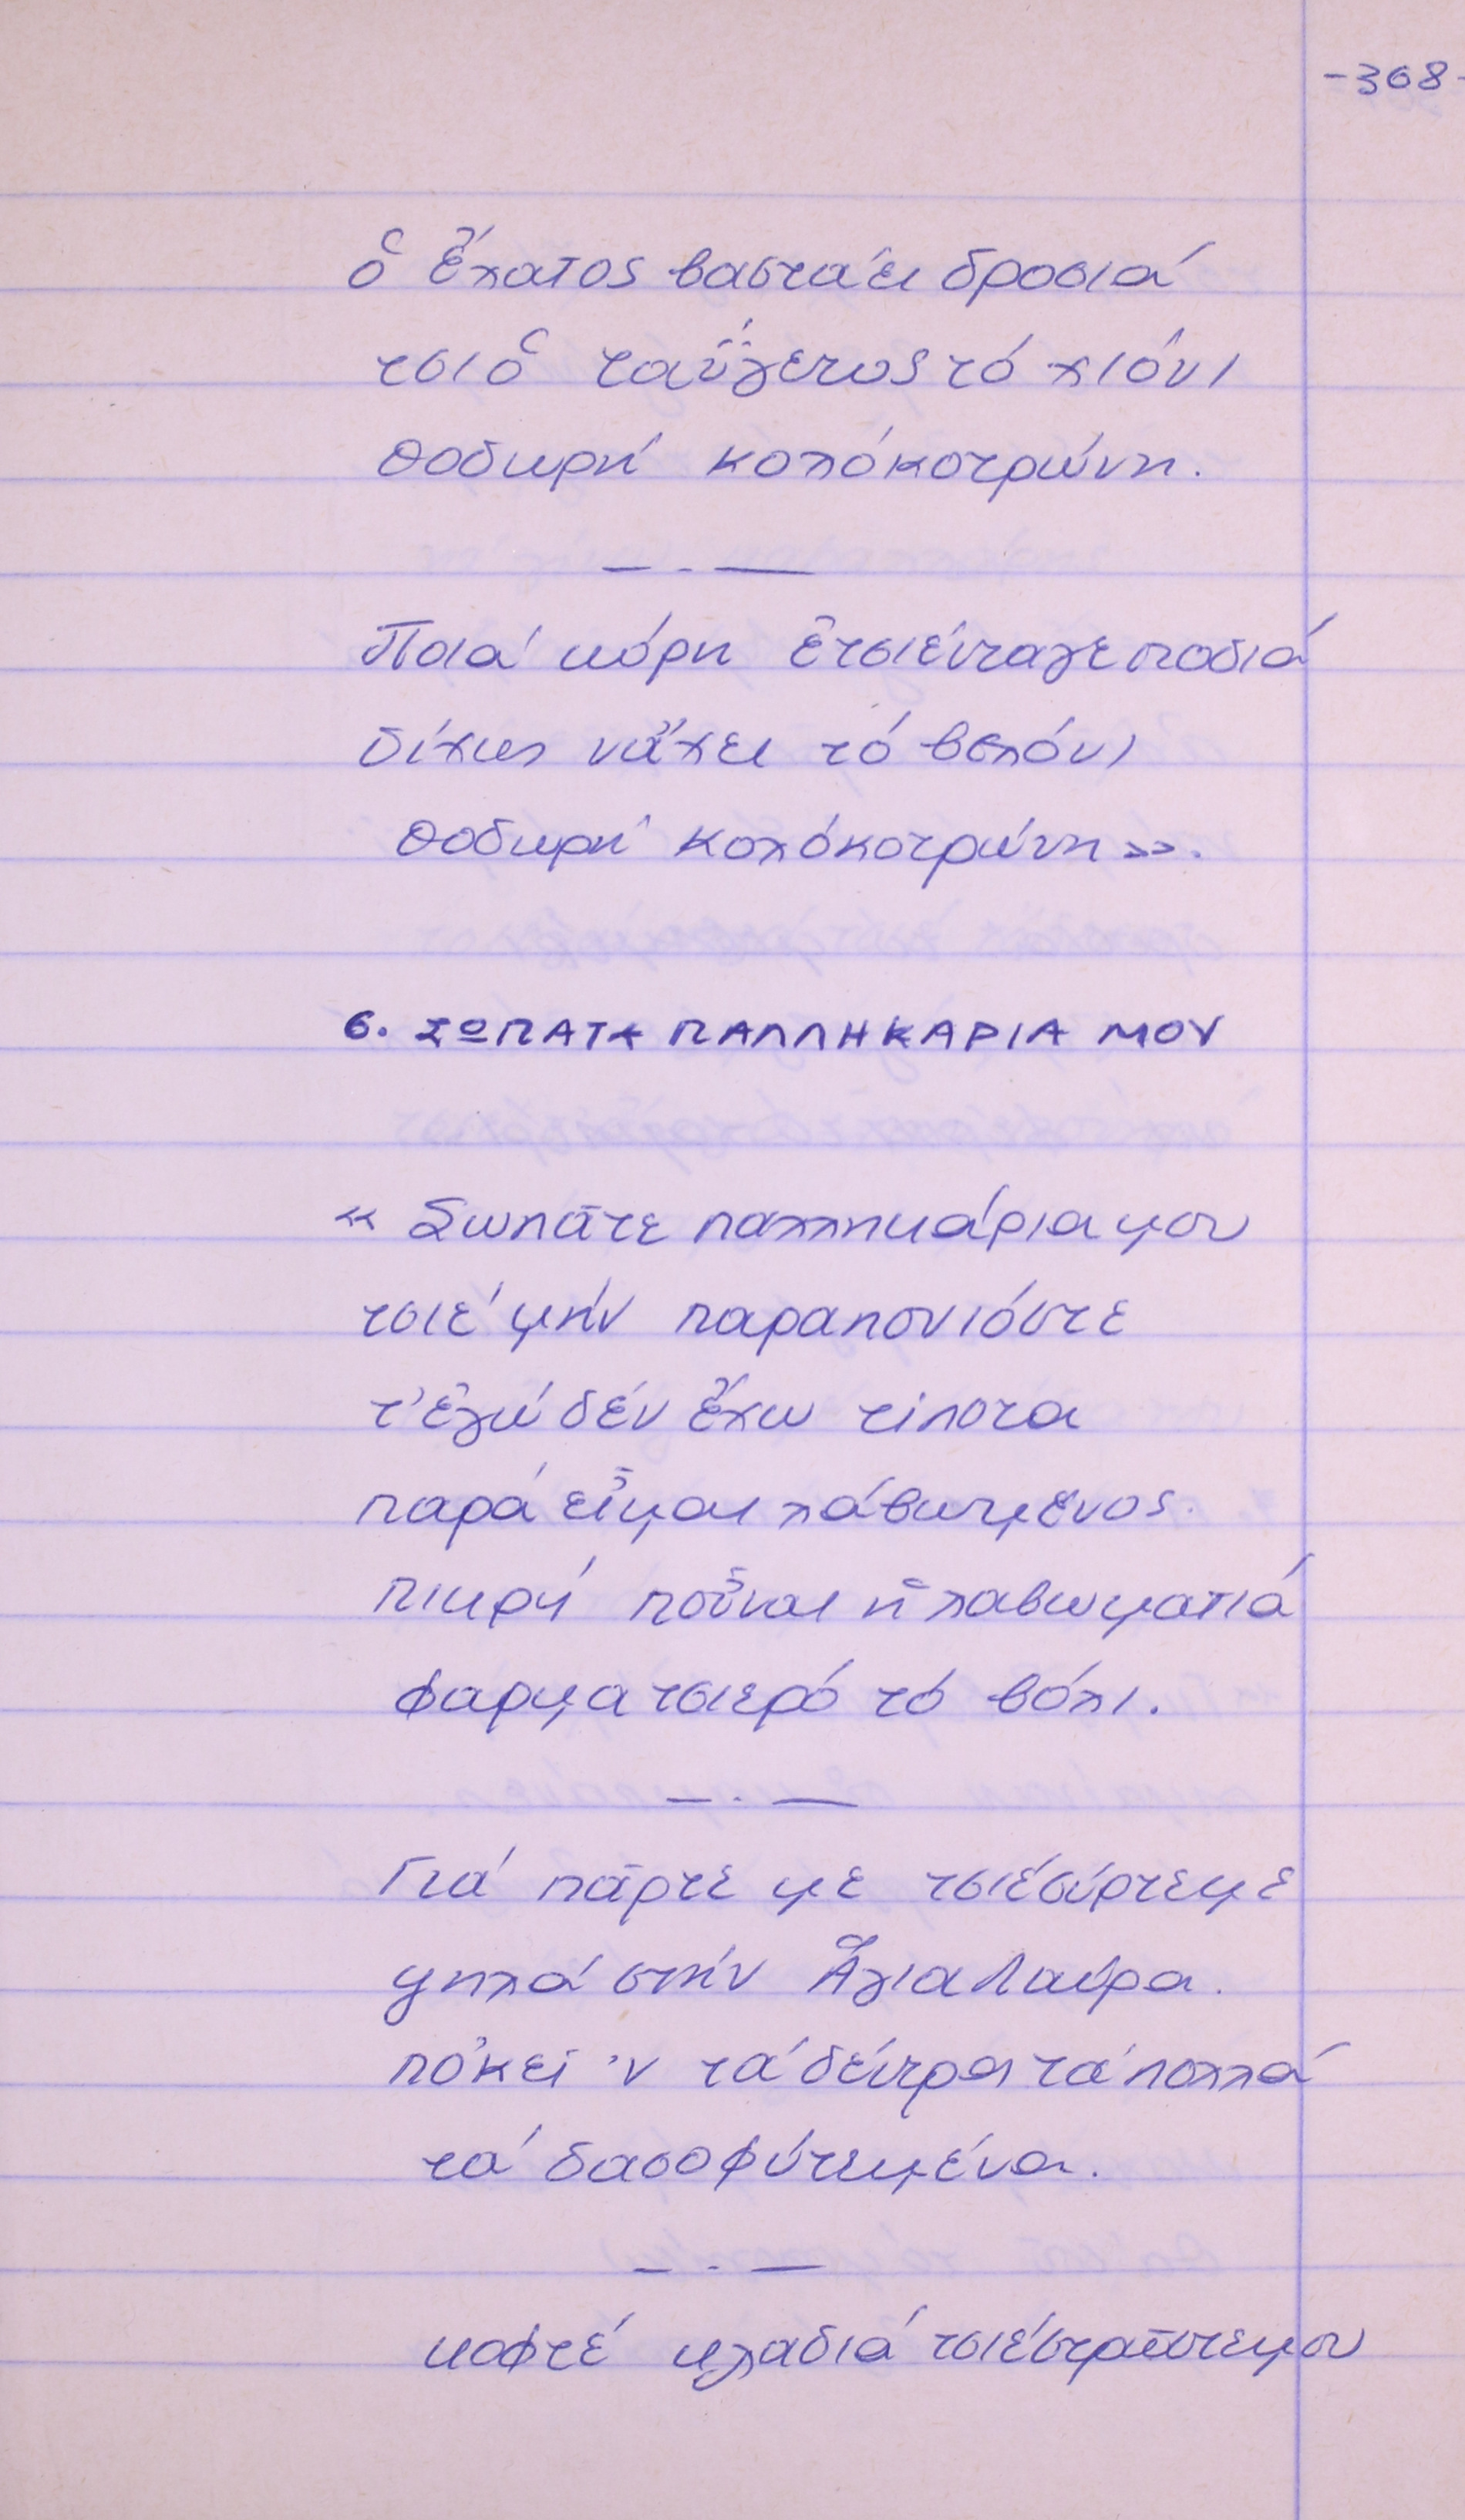 -368-
ὁ ἔλατος βαστάει δροσιά
τσι ὁ ταΰγετος τό χιόνι
Θοδωρή κολόκοτρώνη.
Ποιά κόρη ἐτσιένταγε ποδιά
δίχως νἄχει τό βελόνι
Θοδωρή κολόκοτρώνη».
6. ΣΩΠΑΤΕ ΠΑΛΛΗΚΑΡΙΑ ΜΟΥ
« Σωπᾶτε παλληκάρια μου
τσιέ μήν παραπονιόστε
τ' ἐγώ δέν ἔχω τίποτα
παρά εἶμαι λάβωμένος.
πικρή ποὖναι ἡ λαβωματιά
φαρματσιερό τό βόλι.
Γιά πᾶρτε με τσιέ σύρτε με
ψηλά στήν Ἅγια Λαύρα.
πὄκει 'ν τά δέντρα τά πολλά
τά δασοφύτεμένα.
κοφτέ κλαδιά τσιέ στρῶστε μου